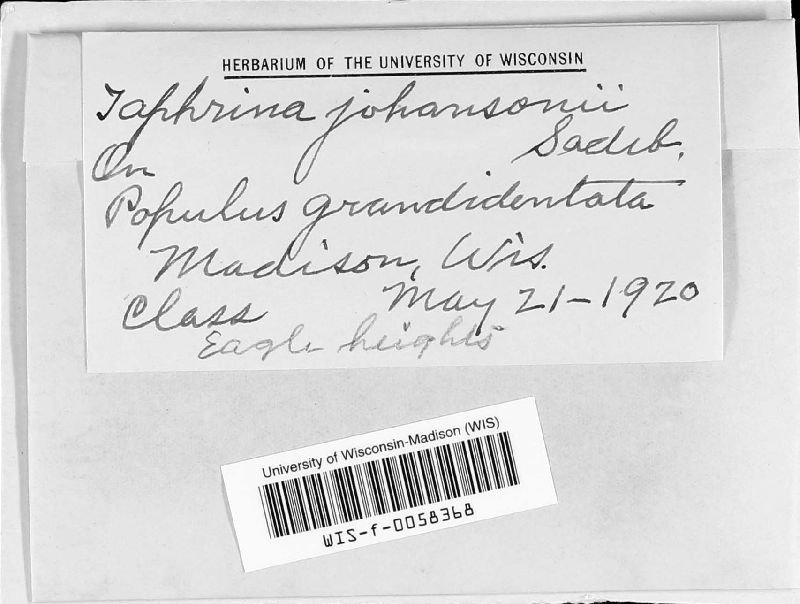 HERBARIUM OF THE UNIVERSITY OF WISCONSIN
Taphrina johansonii
Sadeb.
On
Populus grandidentata
Madison, Wis.
Class May 21-1920
Eagle heights
University of Wisconsin-Madison (WIS)
WIS-f-0058368